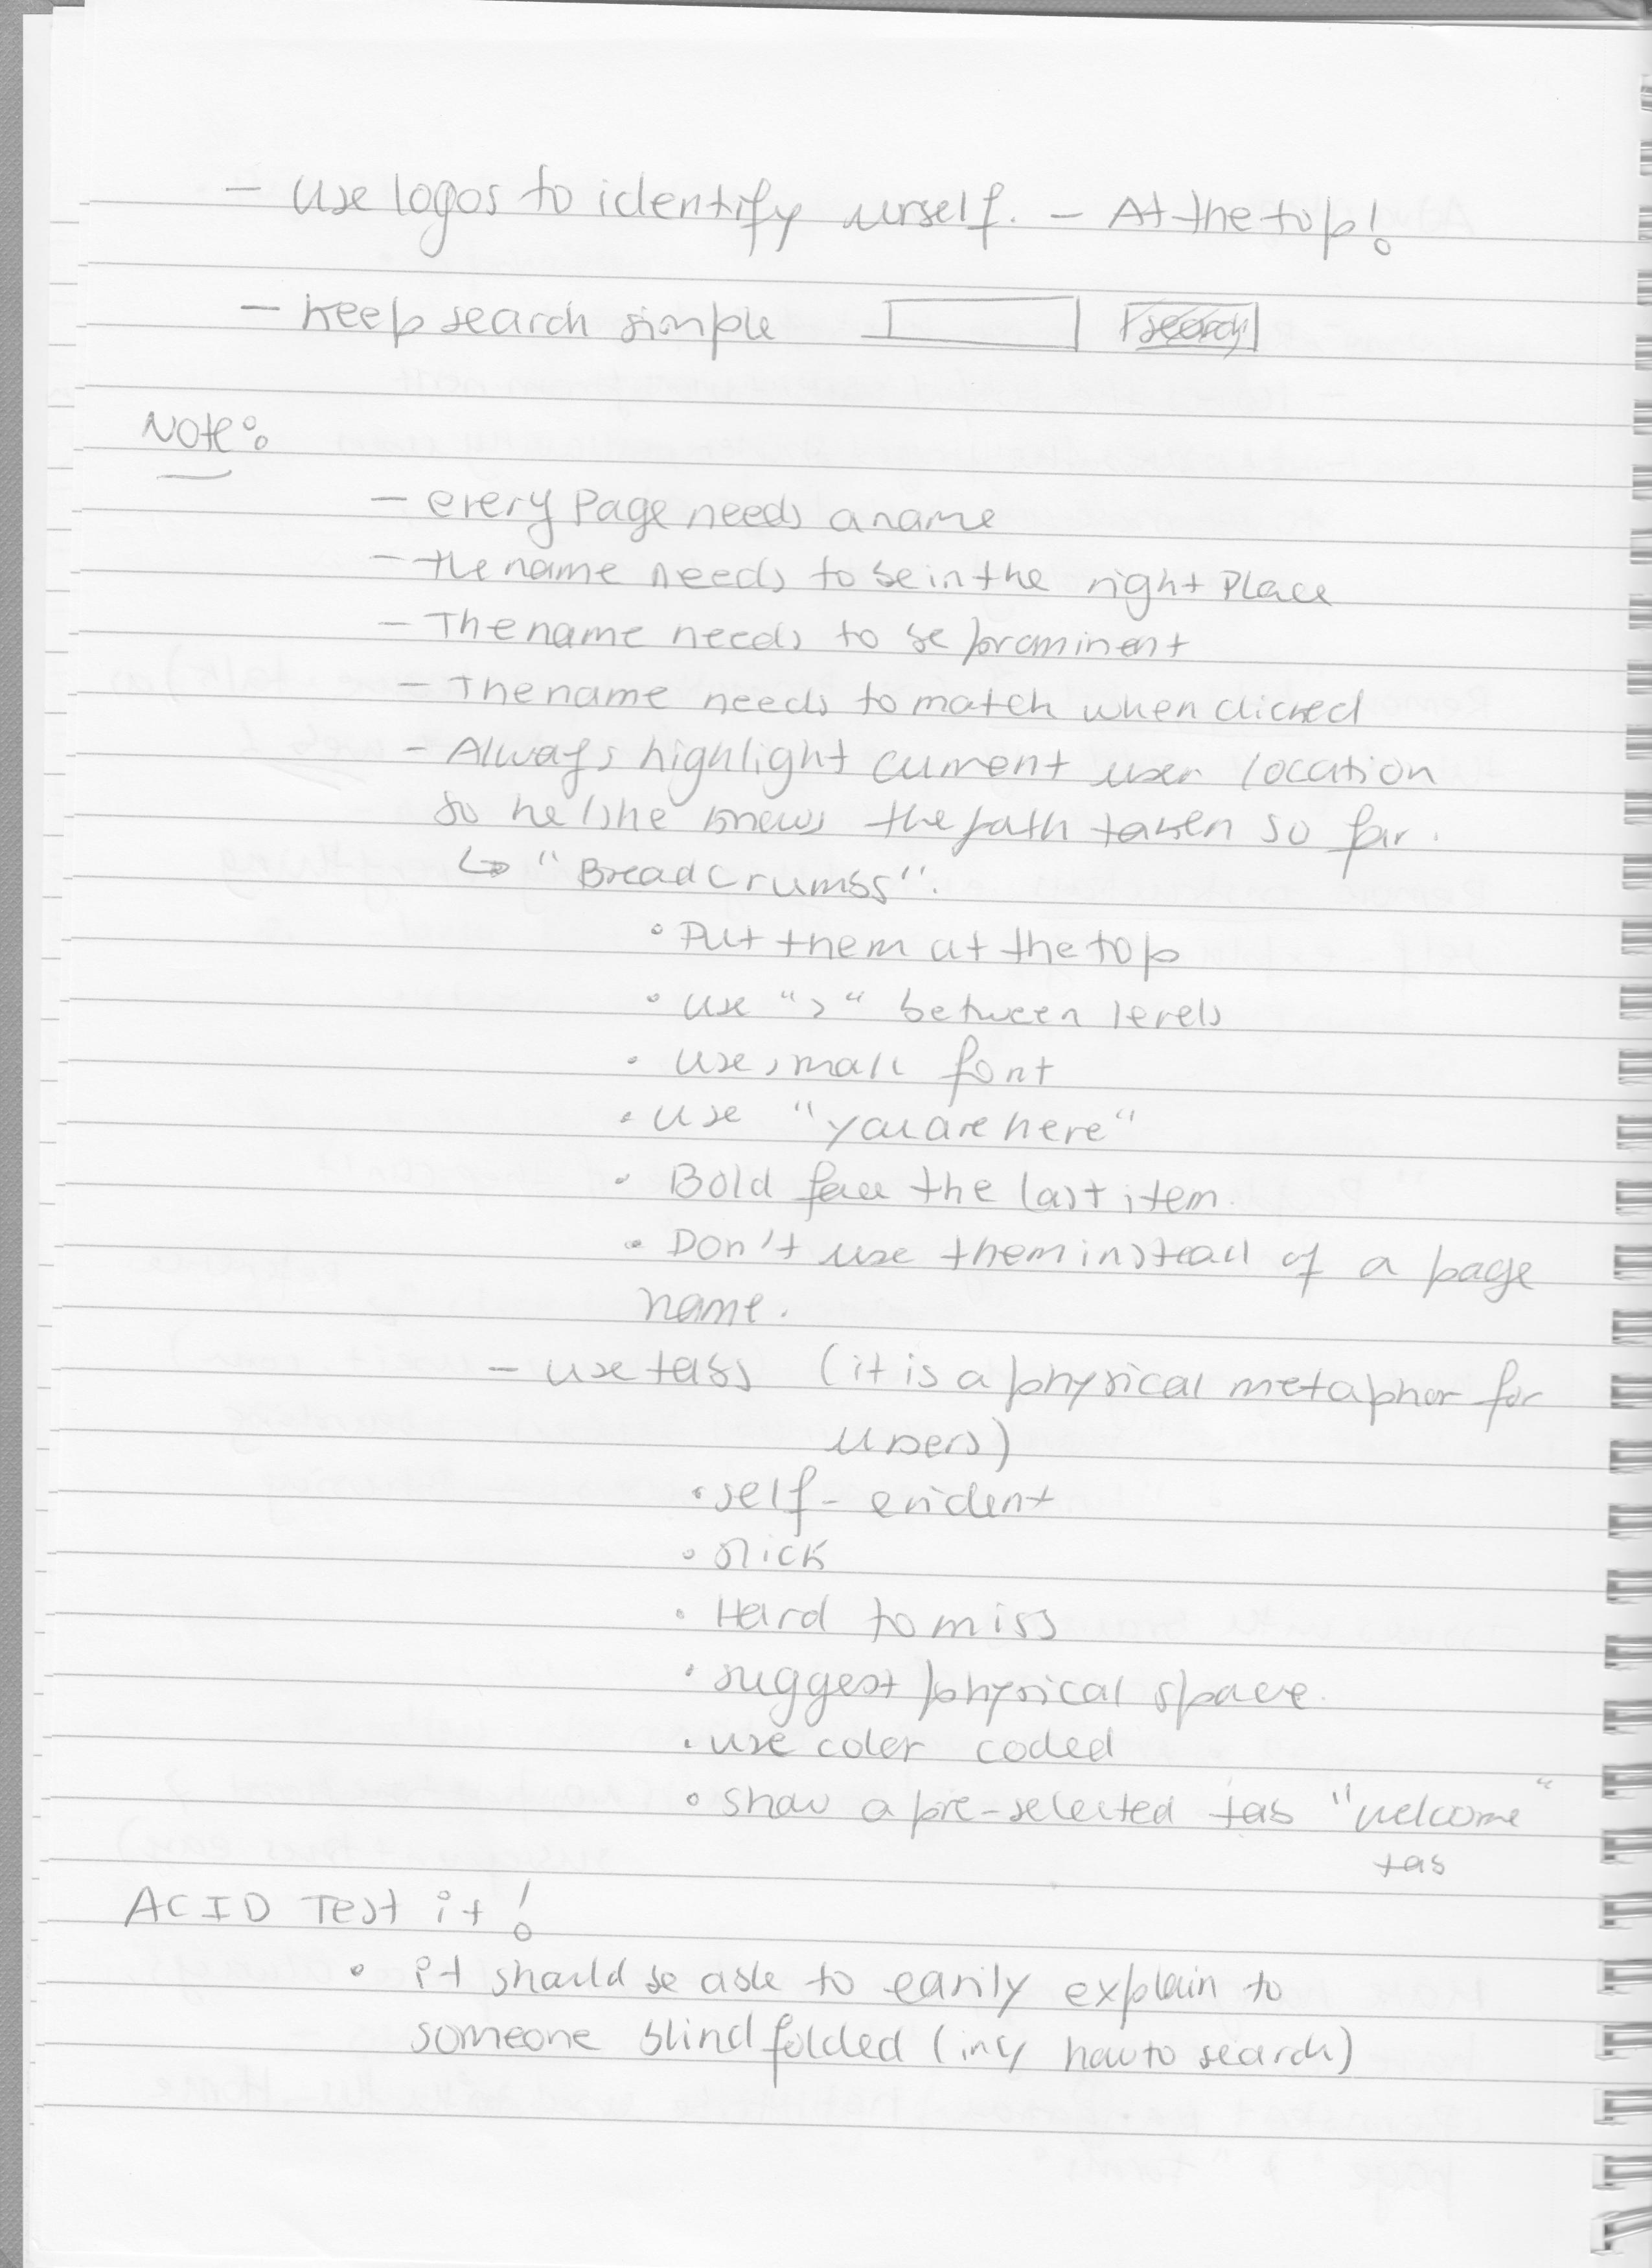 - Use logos to identify urself. - At the top!
- Keep search simple [search]
Note:
- every Page needs a name
- the name needs to be in the right Place
- The name needs to be prominent
- The name needs to match when clicked
- Always highlight current user location
so he/she knows the path taken so far.
↳ "Breadcrumbs".
• Put them at the top
• use ">" between levels
• use small font
• use "you are here"
• Bold face the last item.
• Don't use them instead of a page
name.
- use tabs (it is a physical metaphor for
users)
• self-evident
• slick
• Hard to miss
• suggest physical space.
• use color coded
• show a pre-selected tab "welcome"
tab
ACID Test it!
• it should be able to easily explain to
someone blind folded (incl how to search)